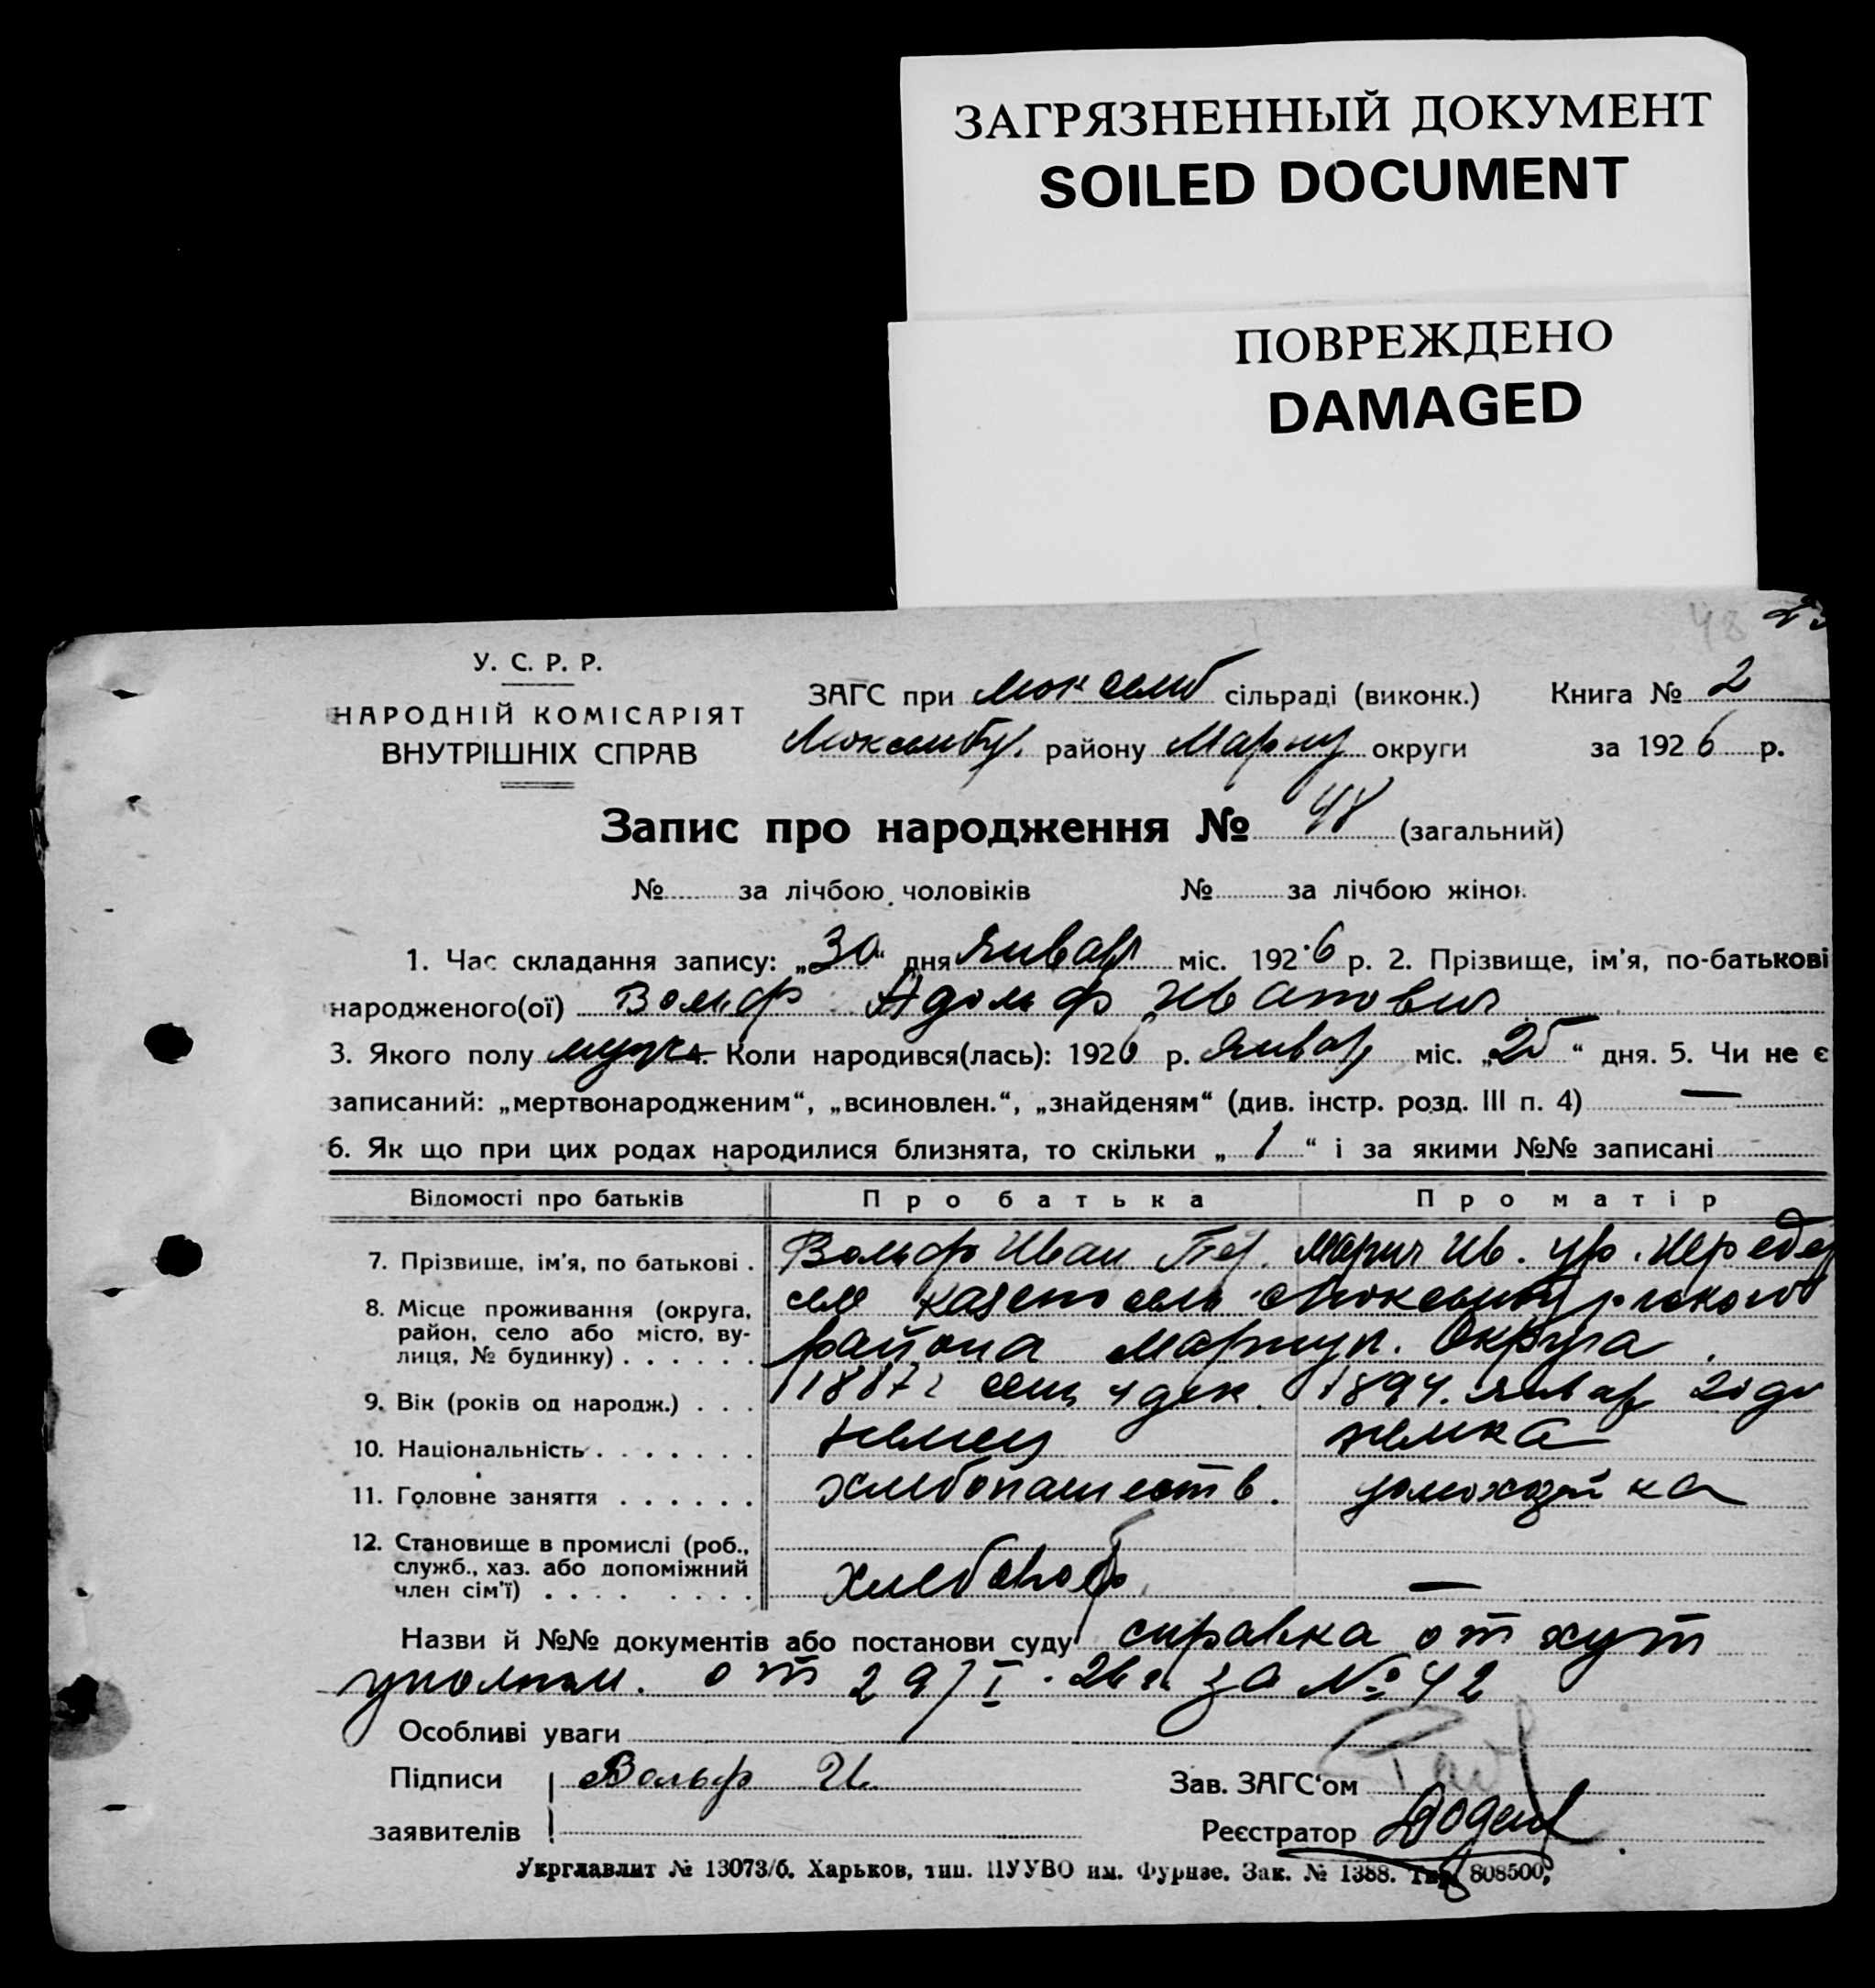 ЗАГРЯЗНЕННЫЙ ДОКУМЕНТ
SOILED DOCUMENT
ПОВРЕЖДЕНО
DAMAGED
48
У. С. Р. Р.
НАРОДНІЙ КОМІСАРІЯТ
ВНУТРІШНІХ СПРАВ
ЗАГС при сільраді (виконк.) Книга № 2
району округи за 1926 р.
Запис про народження № 48 (загальний)
№ за лічбою чоловіків № за лічбою жінок
1. Час складання запису: „30“ дня январ міс. 1926 р. 2. Прізвище, ім'я, по-батькові
народженого(ої) Вольф Адольф Иванович
3. Якого полу мужс 4. Коли народився(лась): 1926 р. январ міс. „25“ дня. 5. Чи не є
записаний: „мертвонародженим“, „всиновлен.“, „знайденям“ (див. інстр. розд. III п. 4) —
6. Як що при цих родах народилися близнята, то скільки „1“ і за якими №№ записані
Відомості про батьків Про батька Про матір
7. Прізвище, ім'я, по батькові . Вольф Иван Пет. Мария Ив. ур.
8. Місце проживання (округа,
район, село або місто, ву-
лиця, № будинку) . . . . . . района Мариуп. Округа
9. Вік (років од народж.) . . . 1887 г 4 дек. 1894. январ 20 дн
10. Національність . . . . . . . немец немка
11. Головне заняття . . . . . . хлебопашеств. домохозяйка
12. Становище в промислі (роб.,
служб., хаз. або допоміжний
член сім'ї) . . . . . . . . хлебороб —
Назви й №№ документів або постанови суду справка от хут
уполном. от 29/I. 26 г. за № 42
Особливі уваги
Підписи Вольф И. Зав. ЗАГС'ом
заявителів Реєстратор
Укрглавлит № 13073/б. Харьков, тип. ПУУВО им. Фрунзе. Зак. № 1388. Тир. 808500.